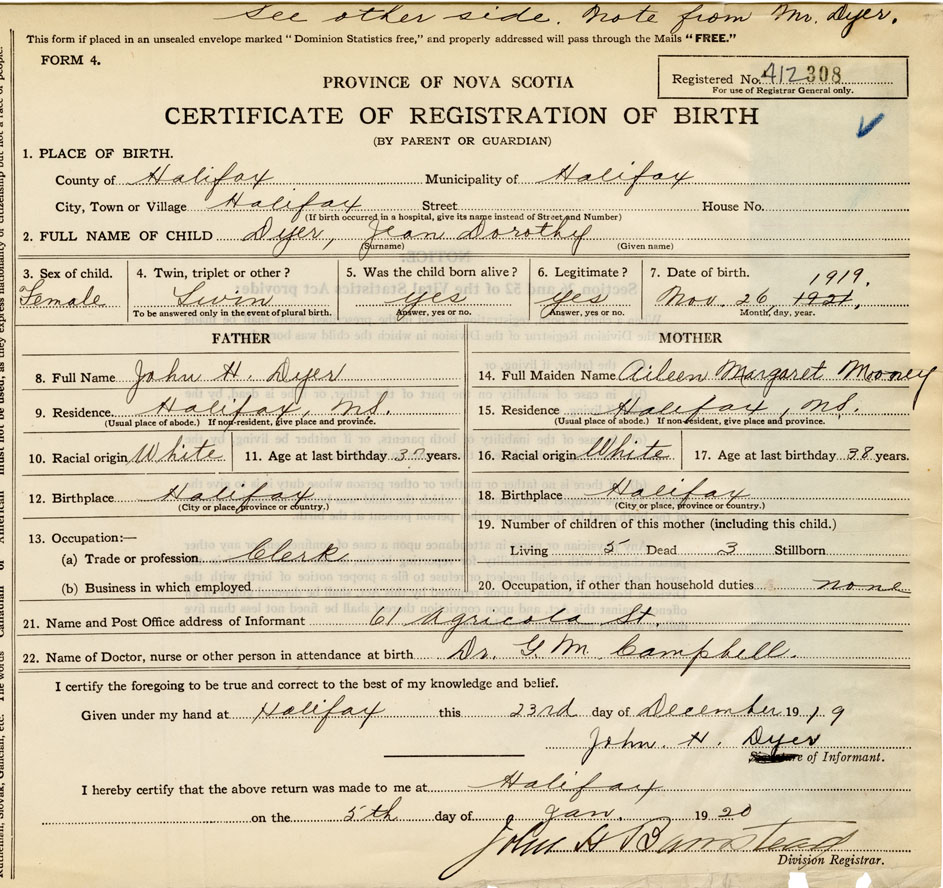 See other side. Note from Mr. Dyer.
This form if placed in an unsealed envelope marked "Dominion Statistics free," and properly addressed will pass through the Mails "FREE."
FORM 4.
Registered No. 412 308
For use of Registrar General only.
PROVINCE OF NOVA SCOTIA
CERTIFICATE OF REGISTRATION OF BIRTH
(BY PARENT OR GUARDIAN)
1. PLACE OF BIRTH.
County of Halifax Municipality of Halifax
City, Town or Village Halifax Street House No.
(If birth occurred in a hospital, give its name instead of Street and Number)
2. FULL NAME OF CHILD Dyer, Jean Dorothy
(Surname) (Given name)
3. Sex of child. 4. Twin, triplet or other? 5. Was the child born alive? 6. Legitimate? 7. Date of birth. 1919.
Female Twin yes yes Nov. 26, 1921,
To be answered only in the event of plural birth. Answer, yes or no. Answer, yes or no. Month, day, year.
FATHER MOTHER
8. Full Name John H. Dyer 14. Full Maiden Name Aileen Margaret Mooney
9. Residence. Halifax, N.S. 15. Residence Halifax, N.S.
(Usual place of abode.) If non-resident, give place and province. (Usual place of abode.) If non-resident, give place and province.
10. Racial origin White 11. Age at last birthday 37 years. 16. Racial origin White 17. Age at last birthday 38 years.
12. Birthplace Halifax 18. Birthplace Halifax
(City or place, province or country.) (City or place, province or country.)
13. Occupation:— 19. Number of children of this mother (including this child.)
(a) Trade or profession Clerk Living 5 Dead 3 Stillborn
(b) Business in which employed 20. Occupation, if other than household duties none
21. Name and Post Office address of Informant 61 Agricola St.
22. Name of Doctor, nurse or other person in attendance at birth Dr. G. M. Campbell.
I certify the foregoing to be true and correct to the best of my knowledge and belief.
Given under my hand at Halifax this 23rd day of December 1919
John H. Dyer
Signature of Informant.
I hereby certify that the above return was made to me at Halifax
on the 5th day of Jan. 1920
John H Barnstead
Division Registrar.